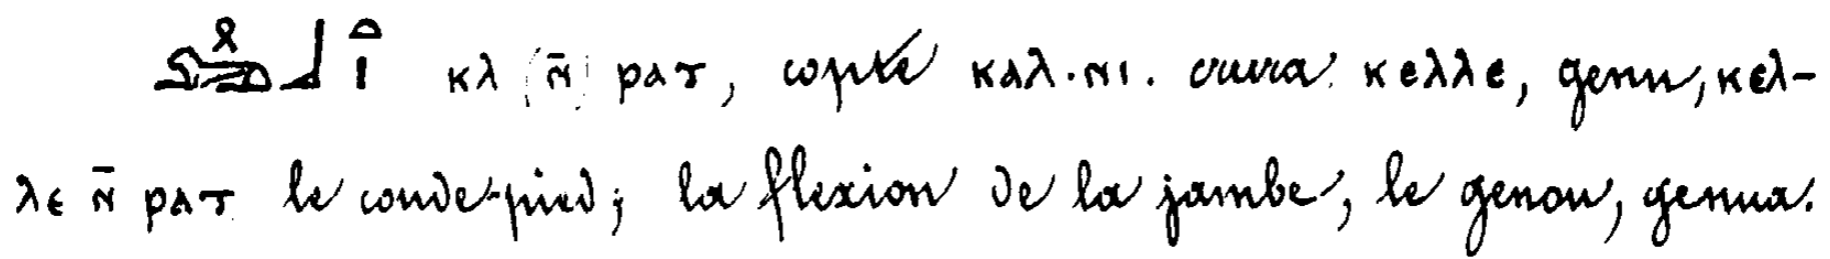 ⲕⲗ (ⲛ̄) ⲣⲁⲧ, copte ⲕⲁⲗ·ⲛⲓ. crura. ⲕⲉⲗⲗⲉ, genu, ⲕⲉⲗ-
ⲗⲉ ⲛ̄ ⲣⲁⲧ le coude-pied; la flexion de la jambe, le genou, genua.